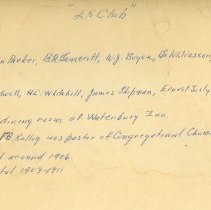 "25 Club"
n Parker, B.R. Demeritt, W.J. Boyce,
well, H.C. Whitehill, James Thpman, Ernest
dining room of Waterbury Inn.
Kellog was pastor of Congregational Church
d around 1906.
tal 1903-1911